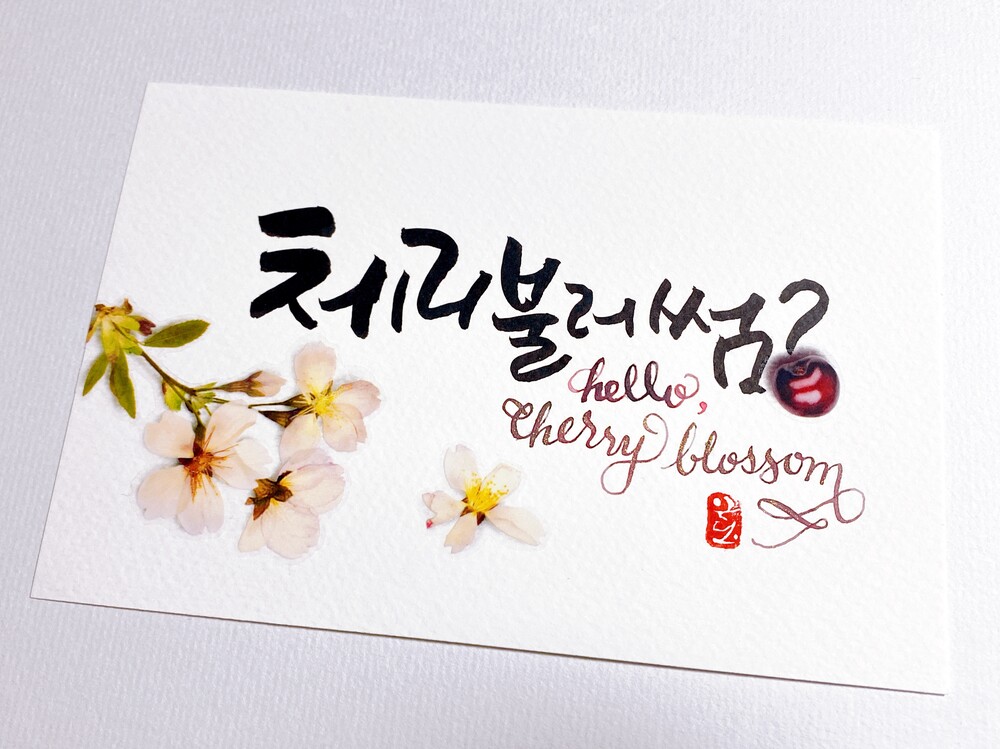 체리블러썸?
hello,
cherry blossom